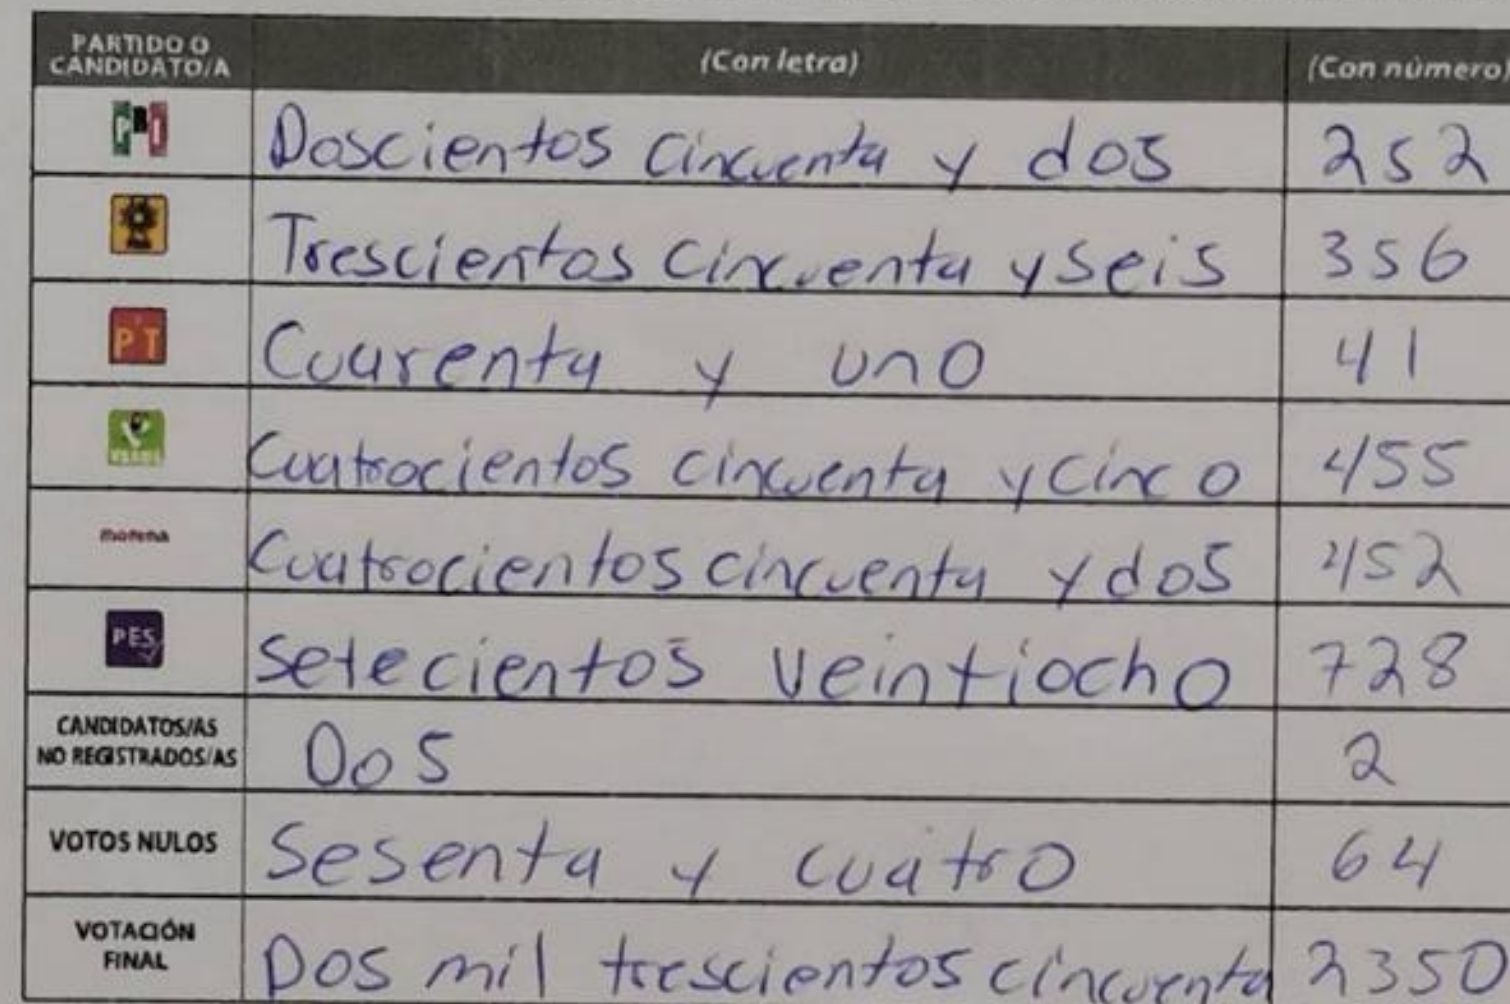 PARTIDO O CANDIDATO/A (Con letra) (Con número)
PRI Doscientos cincuenta y dos 252
Trescientos cincuenta y seis 356
PT Cuarenta y uno 41
VERDE Cuatrocientos cincuenta y cinco 455
morena Cuatrocientos cincuenta y dos 452
PES Setecientos veintiocho 728
CANDIDATOS/AS NO REGISTRADOS/AS Dos 2
VOTOS NULOS Sesenta y cuatro 64
VOTACIÓN FINAL Dos mil trescientos cincuenta 2350